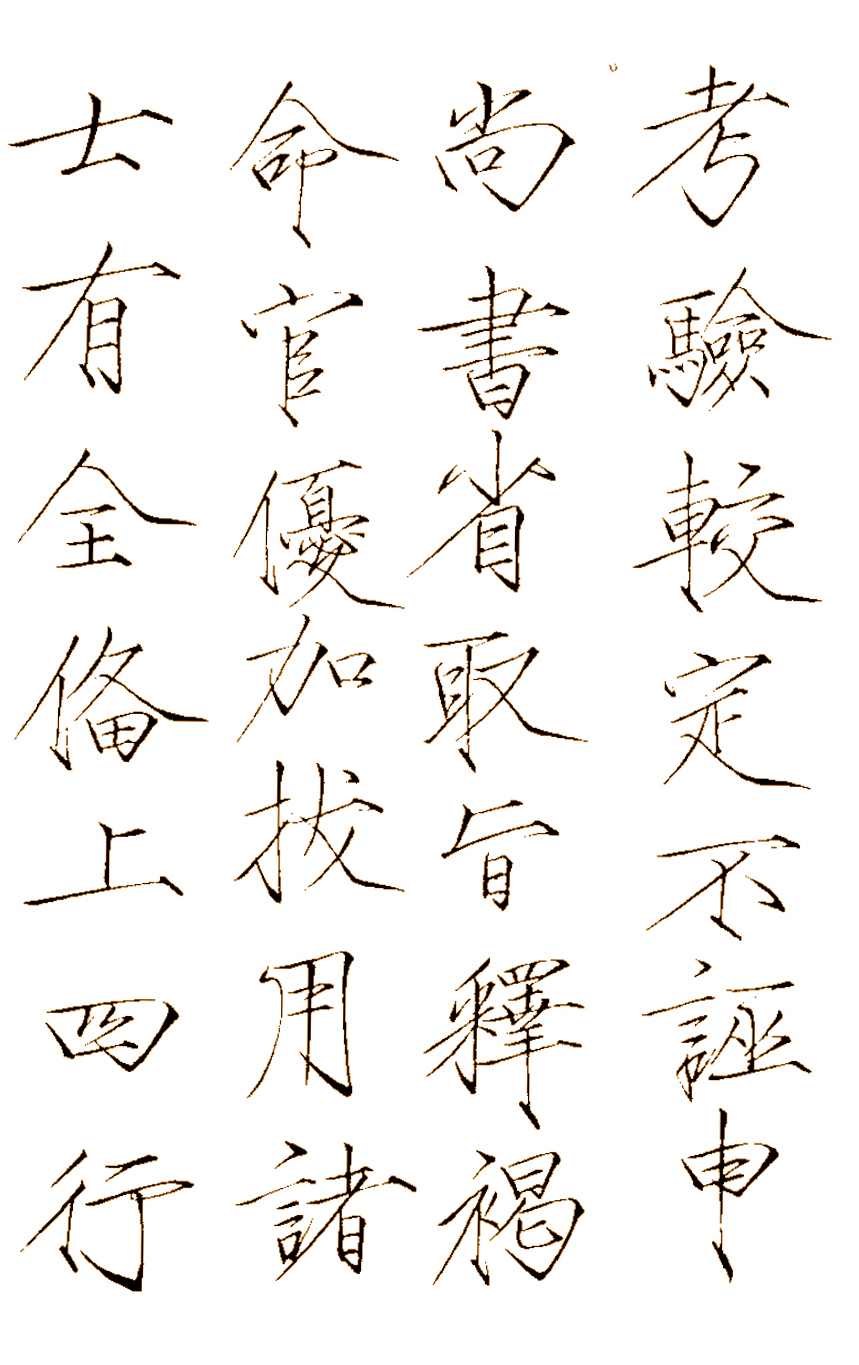 考驗較定不誣申
尚書省取旨釋褐
命官優加拔用諸
士有全俻上四行